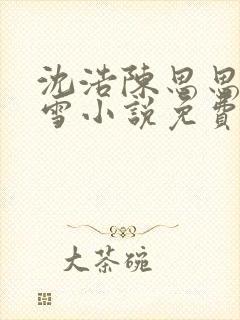 沈浩陳思思
雪小說免費
大茶碗